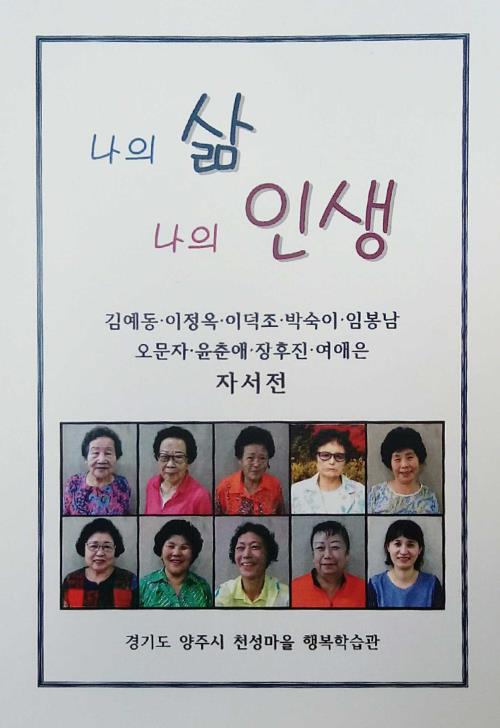 나의 삶
나의 인생
김예동·이정옥·이덕조·박숙이·임봉남
오문자·윤춘애·장후진·여애은
자서전
경기도 양주시 천성마을 행복학습관